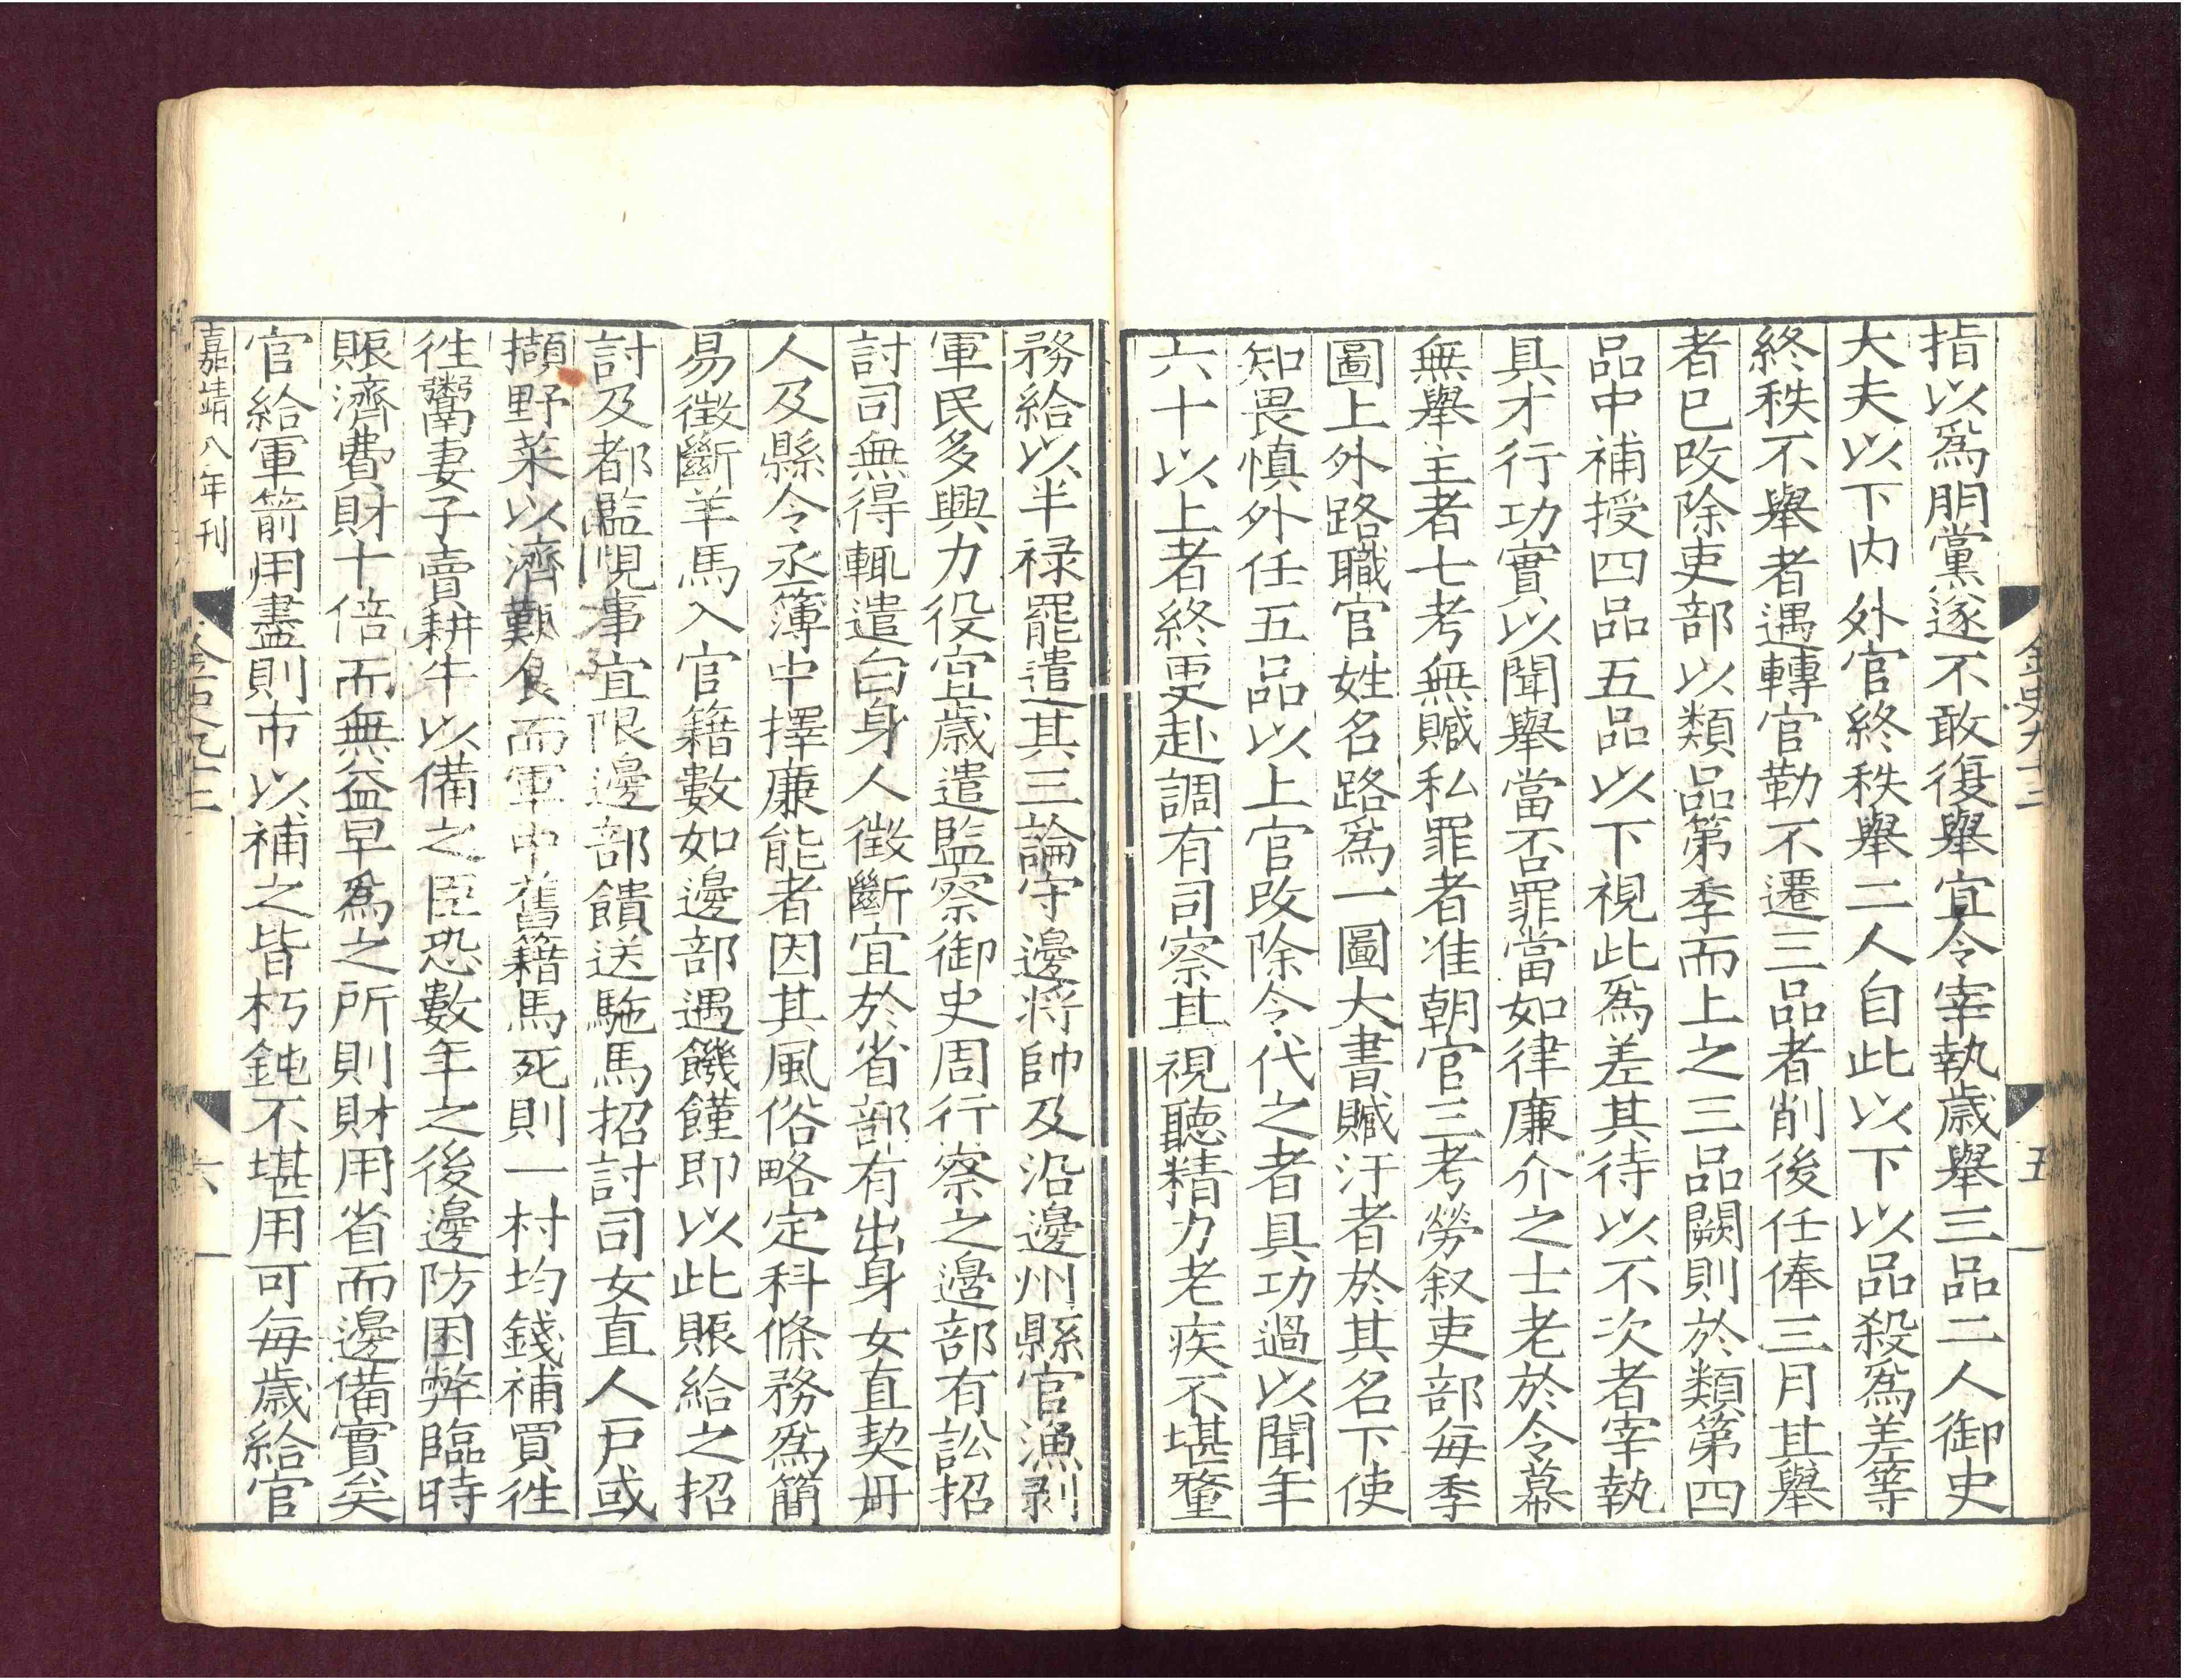 指以爲朋黨遂不敢復舉宜令宰執歲舉三品二人御史
大夫以下內外官終秩舉二人自此以下以品殺爲差等
終秩不舉者遇轉官勒不遷三品者削後任俸三月其舉
者已改除吏部以類品第季而上之三品闕則於類第四
品中補授四品五品以下視此爲差其待以不次者宰執
具才行功實以聞舉當否罪當如律廉介之士老於令幕
無舉主者七考無贓私罪者准朝官三考勞叙吏部每季
圖上外路職官姓名路爲一圖大書贓汙者於其名下使
知畏慎外任五品以上官改除令代之者具功過以聞年
六十以上者終更赴調有司察其視聽精力老疾不堪釐
金史九十二
五
務給以半祿罷遣其三論守邊將帥及沿邊州縣官漁剥
軍民多興力役宜歲遣監察御史周行察之邊部有訟招
討司無得輒遣白身人徵斷宜於省部有出身女直契丹
人及縣令丞簿中擇廉能者因其風俗略定科條務爲簡
易徵斷羊馬入官籍數如邊部遇饑饉即以此賑給之招
討及都監視事宜限邊部饋送駞馬招討司女直人戶或
擷野菜以濟艱食而軍中舊籍馬死則一村均錢補買徃
徃鬻妻子賣耕牛以備之臣恐數年之後邊防困弊臨時
賑濟費財十倍而無益早爲之所則財用省而邊備實矣
官給軍箭用盡則市以補之皆朽鈍不堪用可每歲給官
嘉靖八年刊
六